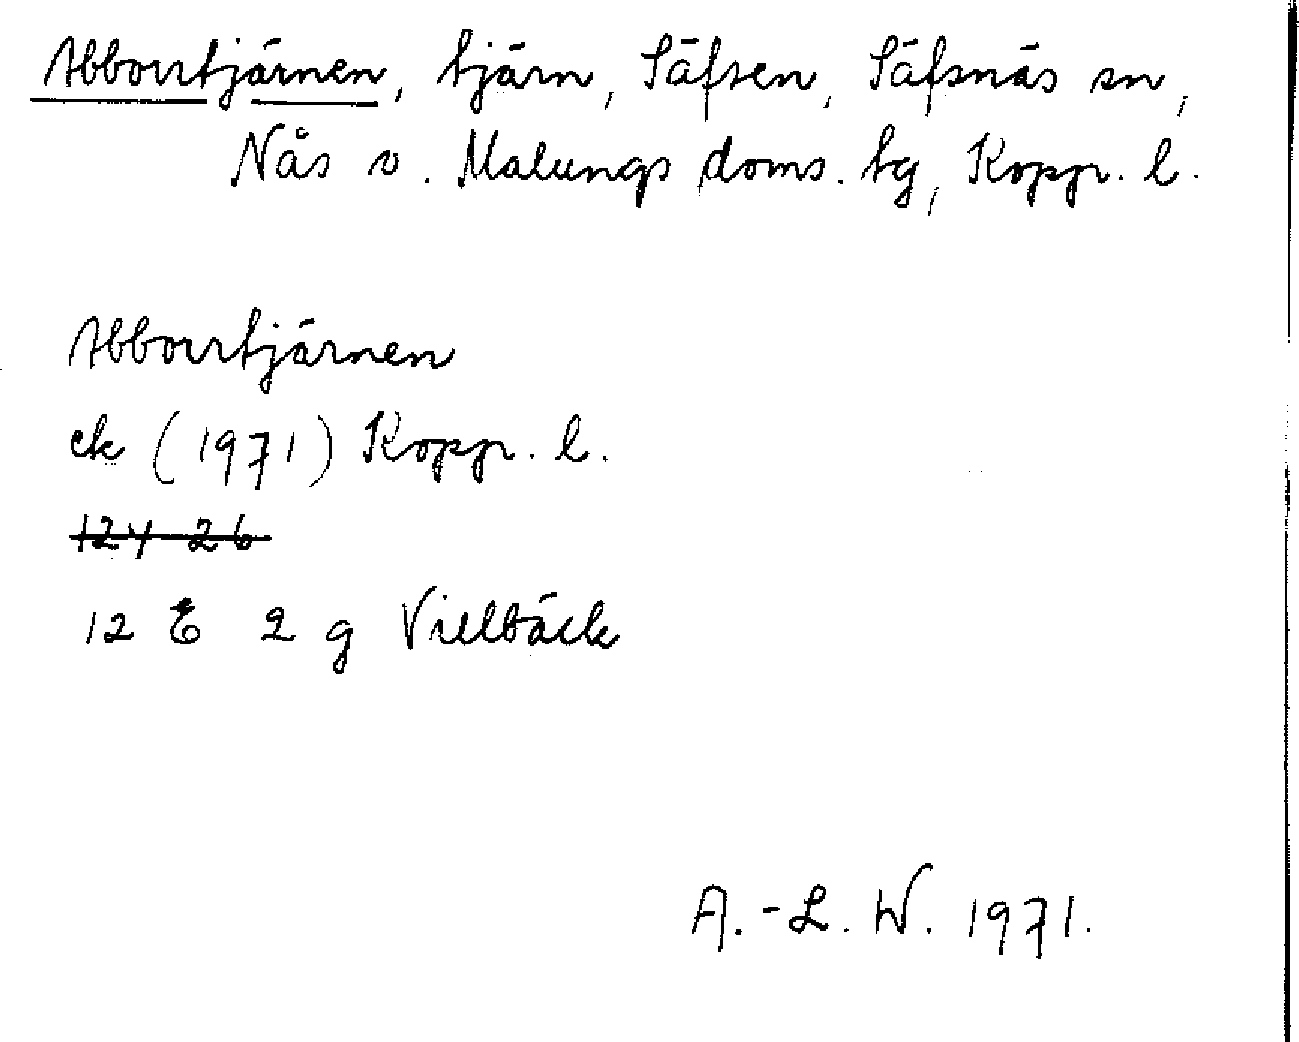 Abborrtjärnen, tjärn, Säfsen, Säfsnäs sn,
Nås o. Malungs doms. tg, Kopp. l.
Abborrtjärnen
ek (1971) Kopp. l.
12 E 2 g
A.-L. W. 1971.